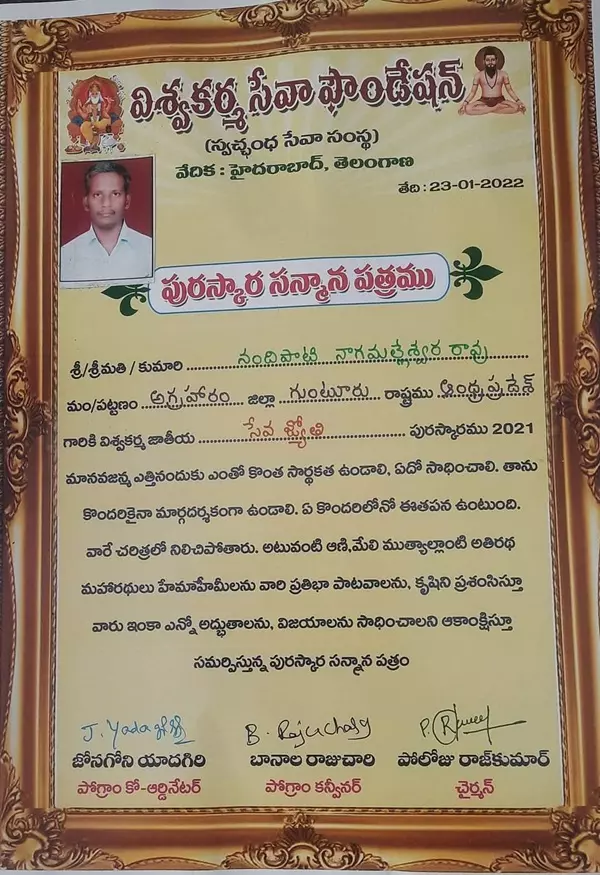 విశ్వకర్మ సేవా ఫౌండేషన్
(స్వచ్ఛంధ సేవా సంస్థ)
వేదిక : హైదరాబాద్, తెలంగాణ
తేది : 23-01-2022
పురస్కార సన్మాన పత్రము
శ్రీ/శ్రీమతి / కుమారి నందిపాటి నాగమల్లేశ్వర రావు
మం/పట్టణం అగ్రహారం జిల్లా గుంటూరు రాష్ట్రము ఆంధ్రప్రదేశ్
గారికి విశ్వకర్మ జాతీయ సేవ జ్యోతి పురస్కారము 2021
మానవజన్మ ఎత్తినందుకు ఎంతో కొంత సార్థకత ఉండాలి, ఏదో సాధించాలి. తాను
కొందరికైనా మార్గదర్శకంగా ఉండాలి. ఏ కొందరిలోనో ఈతపన ఉంటుంది.
వారే చరిత్రలో నిలిచిపోతారు. అటువంటి ఆణి,మేలి ముత్యాల్లాంటి అతిరథ
మహారథులు హేమాహేమీలను వారి ప్రతిభా పాటవాలను, కృషిని ప్రశంసిస్తూ
వారు ఇంకా ఎన్నో అద్భుతాలను, విజయాలను సాధించాలని ఆకాంక్షిస్తూ
సమర్పిస్తున్న పురస్కార సన్మాన పత్రం
J. Yadagiri B. Rajuchary P.
జోనగోని యాదగిరి బానాల రాజుచారి పోలోజు రాజ్‌కుమార్
పోగ్రాం కో-ఆర్డినేటర్ పోగ్రాం కన్వీనర్ చైర్మన్